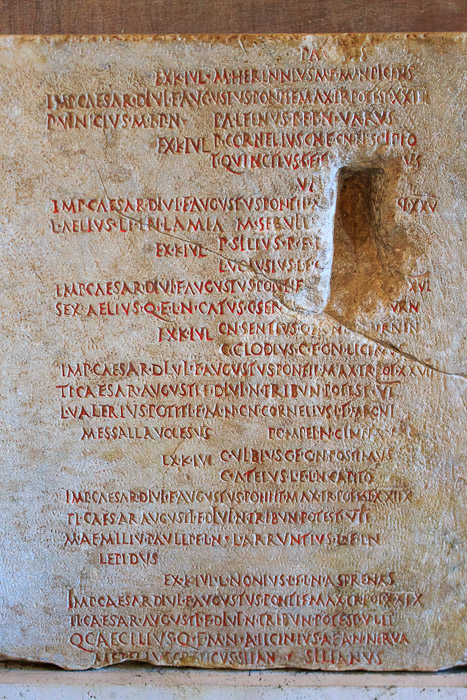 EX·K·IVL·M·HERENNIVS·M·F
IMP·CAESAR·DIVI·F·AVGVSTVS·PONTIF·MAX·TR·POTEST
P·VINICIVS·M·F·P·N· P·ALFENVS·P·F·P·N·VARVS
EX·K·IVL P·CORNELIVS·CN·F·CN·N·SCIPIO
T·QVINCTIVS
IMP·CAESAR·DIVI·F·AVGVSTVS·PONTIF
L·AELIVS·L·F·L·N·LAMIA M·SERVIL
EX·K·IVL P·SILIVS·P·F·P
LVCIVSIVS·L·F
IMP·CAESAR·DIVI·F·AVGVSTVS·PONTIF XVI
SEX·AELIVS·Q·F·L·N·CATVS·C·SEN VRN
EX·K·IVL CN·SENTIVS·C·F
C·CLODIVS·C·F·C·N·LICIN
IMP·CAESAR·DIVI·F·AVGVSTVS·PONTIF·MAX·TR·POTEST·XXVII
TI·CAESAR·AVGVSTI·F·DIVI·N·TRIBVN·POTEST·VI
L·VALERIVS·POTITI·F·M·N·CN·CORNELIVS·L·F·MAGNI
MESSALLA·VOLESVS POMPEI·N·CINNA
EX·K·IVL C·VIBIVS·C·F·C·N·POSTIMVS
C·ATEIVS·L·F·L·N·CAPITO
IMP·CAESAR·DIVI·F·AVGVSTVS·PONTIF·MAX·TR·POTEST·XXIIX
TI·CAESAR·AVGVSTI·F·DIVI·N·TRIBVN·POTEST·VII
M·AEMILIVS·PAVLL·F·L·N· L·ARRVNTIVS·L·F·L·N
LEPIDVS
EX·K·IVL·L·NONIVS·L·F·L·N·ASPRENAS
IMP·CAESAR·DIVI·F·AVGVSTVS·PONTIF·MAX·TR·POT·XXIX
TI·CAESAR·AVGVSTI·F·DIVI·N·TRIBVN·POTEST·VIII
Q·CAECILIVS·Q·F·M·N·A·LICINIVS·A·F·A·N·NERVA
METELLVS·CRETICVS·SILAN SILIANVS